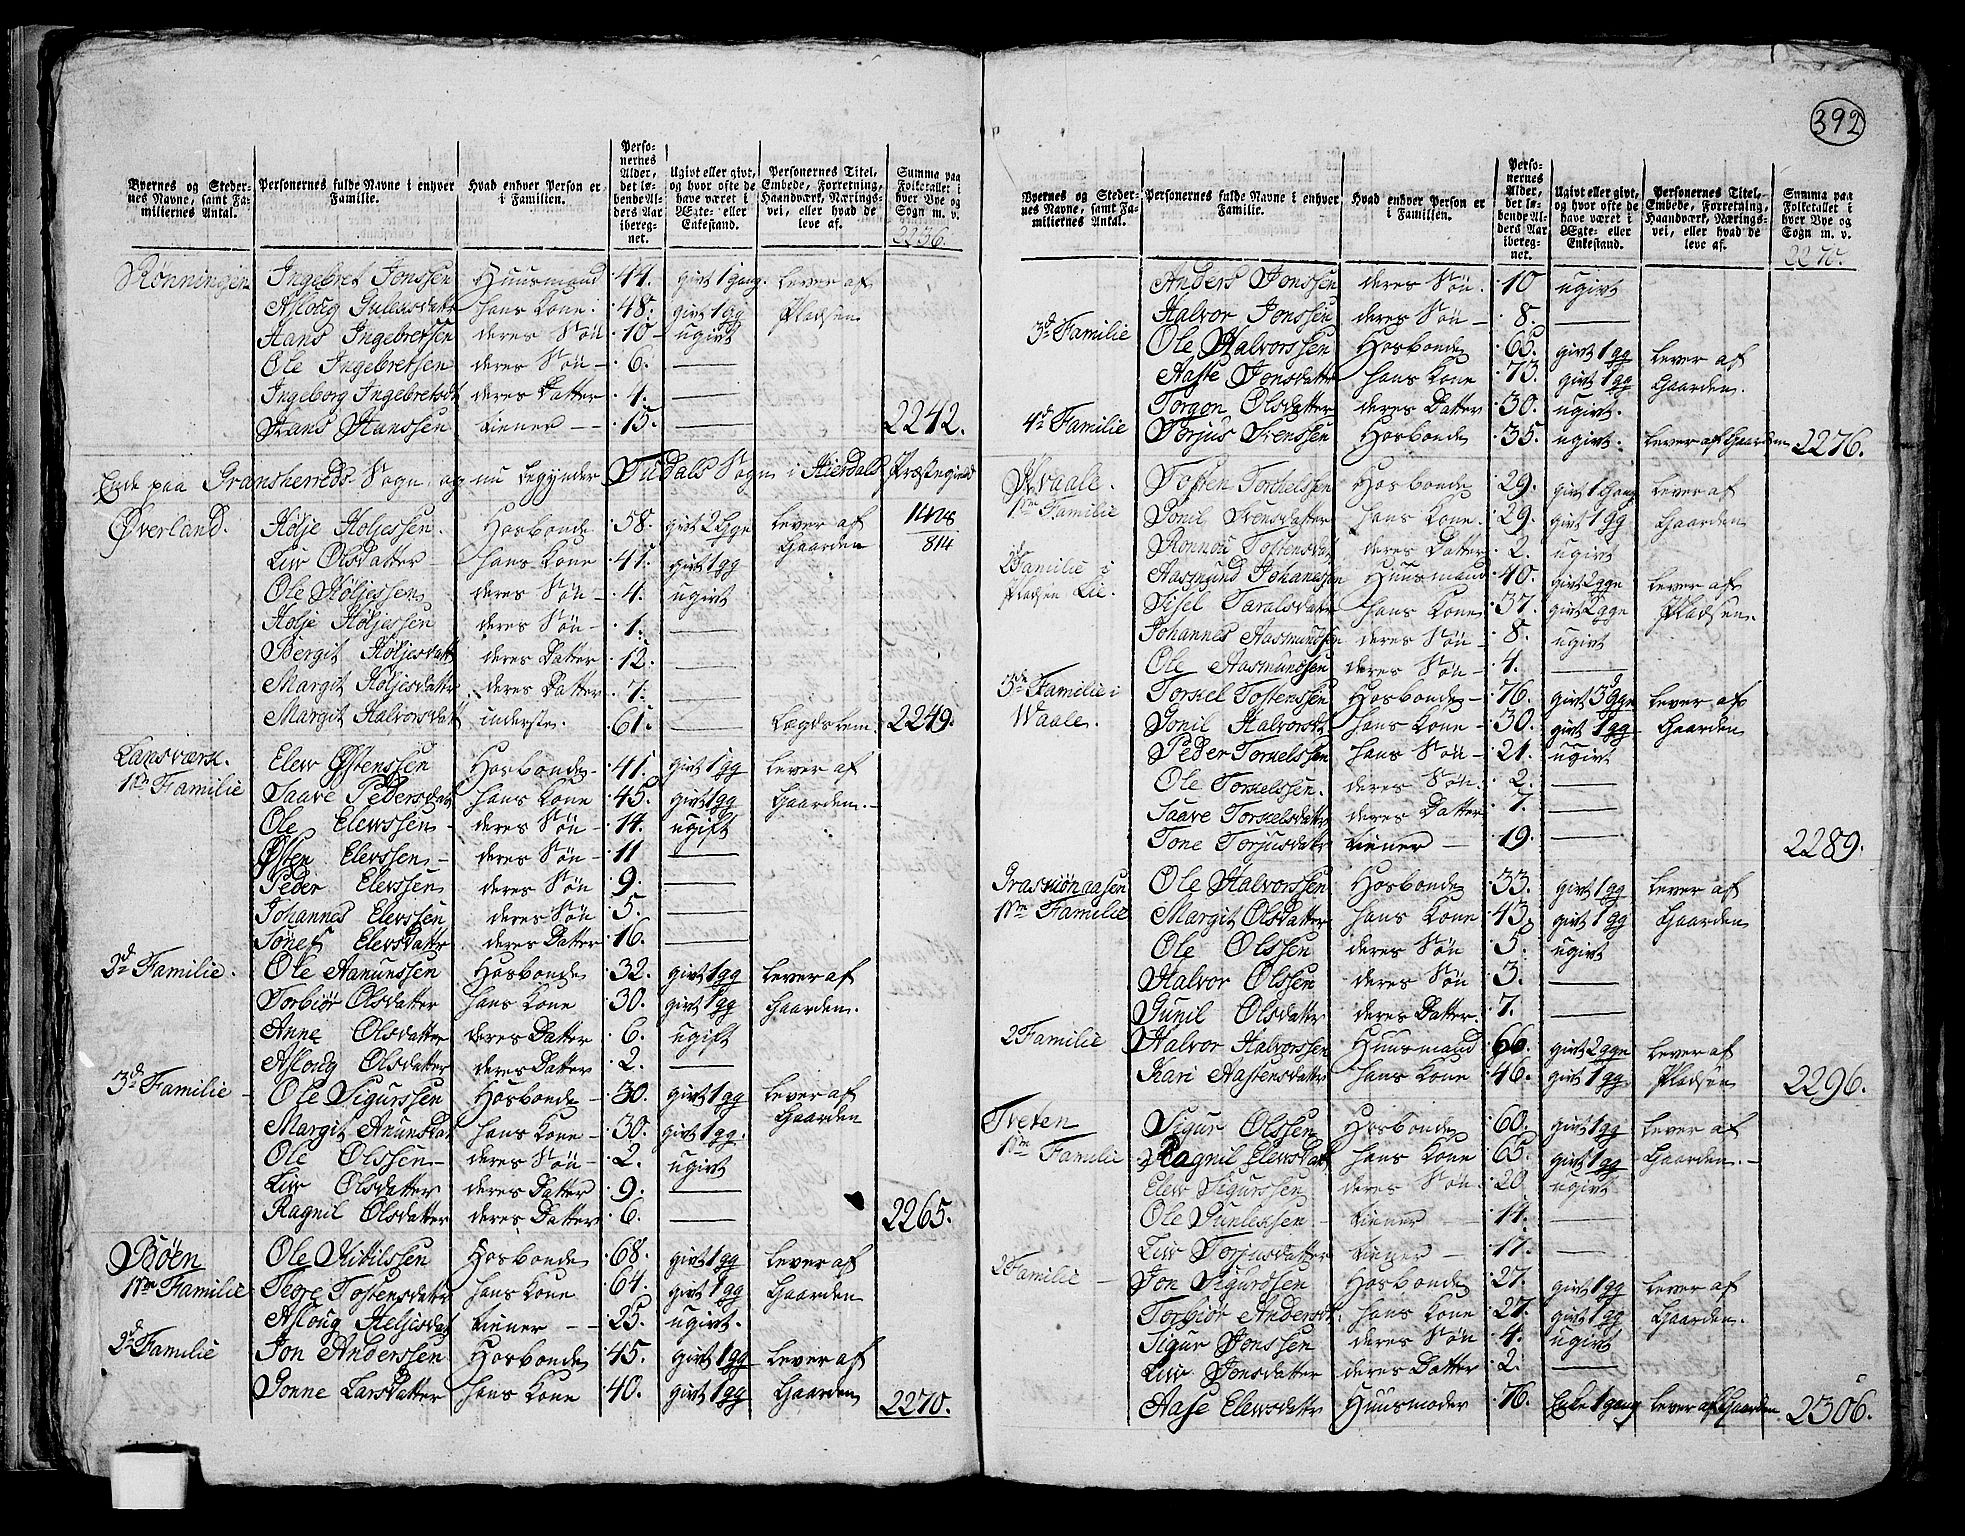 392
Byernes og Stedernes Navne, samt Familiernes Antal.
Personernes fulde Navne i enhver Familie.
Hvad enhver Person er i Familien.
Personernes Alder, det løbende Alders Aar iberegnet.
Ugivt eller givt, og hvor ofte de have været i Ægte- eller Enkestand.
Personernes Titel, Embede, Forretning, Haandværk, Næringsvei, eller hvad de leve af.
Summa paa Folketallet i hver Bye og Sogn m. v.
2236.
Rønningen Ingebret Jonssen Huusmand 44. givt 1 gang. lever af
Asloug hans Kone. 48. givt 1 gg Pladsen
Hans Ingebretsen deres Søn 10 ugivt
Ole Ingebretsen deres Søn 6. —
Ingeborg Ingebretsdt deres Datter 4. —
Hans Hanssen tiener 15. — 2242.
Ende paa Gransherreds Sogn, og nu begynder Tudals Sogn i Hierdals Præstegield
Øverland. Høljе Høljessen. Hosbonde 58. givt 2 gge lever af 1428
Liv Olsdatter hans Kone 41. givt 1 gg Gaarden 814
Ole Høljessen deres Søn 4. ugivt
Hølje Høljessen deres Søn 1. —
Bergit Høljesdatt deres Datter 12. —
Margit Høljesdattr deres Datter 7. —
Margit Halvorsdatt inderste. 61. — Lægdslem. 2249.
Lansværk.
1ste Familie Elew Østenssen Hosbonde 41. givt 1 gg lever af
Taave Pedersdatt hans Kone 45. givt 1 gg Gaarden.
Ole Elewssen deres Søn 14. ugift
Østen Elevssen deres Søn 11 —
Peder Elevssen deres Søn 9. —
Johannes Elevssen deres Søn 5. —
Elevsdattr deres Datter 16. —
2d Familie. Ole Aanunssen Hosbonde 32. givt 1 gg lever af
Torbiør Olsdatter hans Kone 30. givt 1 gg Gaarden.
Anne Olsdatter deres Datter 6. ugift
Asloug Olsdatter deres Datter 2. —
3d Familie Ole Sigurssen Hosbonde 30. givt 1 gg lever af
Margit Anunsdat hans Kone 30. givt 1 gg. Gaarden
Ole Olssen deres Søn 2. ugivt
Liv Olsdatter deres Datter 9. —
Ragnil Olsdatter deres Datter 6. — 2265.
Bøen
1ste Familie Ole Kitilssen Hosbonde 68. givt 1 gg lever af
Tore Tostensdattr hans Kone 64. givt 1 gg Gaarden
Asloug Heljesdat tiener 25. ugivt.
2d Familie Jon Anderssen Hosbonde 45. givt 1 gg lever af
Gonne Larsdatter hans Kone 40. givt 1 gg Gaarden 2270.
Byernes og Stedernes Navne, samt Familiernes Antal.
Personernes fulde Navne i enhver Familie.
Hvad enhver Person er i Familien.
Personernes Alder, det løbende Alders Aar iberegnet.
Ugivt eller givt, og hvor ofte de have været i Ægte- eller Enkestand.
Personernes Titel, Embede, Forretning, Haandværk, Næringsvei, eller hvad de leve af.
Summa paa Folketallet i hver Bye og Sogn m. v.
2270.
Anders Jonssen deres Søn. 10 ugivt
Halvor Jonssen deres Søn 8. —
3d Familie Ole Halvorssen Hosbonde 65. givt 1 gg lever af
Aaste Jonsdatter hans Kone 73. givt 1 gg Gaarden.
Torgon Olsdatter deres Datter 30. ugivt.
4d Familie Torjus Svenssen Hosbonde 35. ugivt. lever af Gaarden 2276.
Kvaale.
1ste Familie Tosten Torkelssen Hosbonde 29. givt 1 gang lever af
Gonil Svensdatter hans Kone. 29. givt 1 gg Gaarden
Ronnou Tostensdat deres Datter 2. ugivt
2d Familie i Aasmund Johanessen Huusmand 40. givt 2 gge lever af
Pladsen Lie. Sisel Taralsdatter hans Kone 37. givt 2 gge Pladsen.
Johannes Aasmundsen deres Søn 8. ugivt
Ole Aasmundsen deres Søn 4. —
3de Familie i Torkel Tostenssen Hosbonde 76. givt 3 gge lever af
Waale. Gonil Halvorsdt hans Kone 30. givt 1 gg Gaarden
Peder Torkelssen hans Søn 21. ugivt
Ole Torkelssen. deres Søn. 2. —
Taave Torkelsdatter deres Datter 7. —
Tone Torjusdattr tiener 19. — 2289.
1ste Familie Ole Halvorssen Hosbonde 33. givt 1 gg lever af
Margit Olsdatter hans Kone 43. givt 1 gg Gaarden
Ole Olssen deres Søn 5. ugivt
Halvor Olssen deres Søn 3. —
Gunil Olsdattr deres Datter. 7. —
2 Familie Halvor Halvorssen Huusmand 66. givt 2 gge lever af
Kari Aastensdattr hans Kone 46. givt 1 gg Pladsen 2296.
Tveten
1ste Familie Sigur Olssen Hosbonde 60. givt 1 gg lever af
Ragnil Elewsdatt hans Kone 65. givt 1 gg Gaarden.
Elew Sigurssen deres Søn 20 ugivt
Ole Gunleksen tiener 14. —
Liv Torjusdatter tiener 17. —
2 Familie Jon Sigurdssen Hosbonde 27. givt 1 gg lever af
Torbiør Andersdt. hans Kone 27. givt 1 gg Gaarden.
Sigur Jonssen deres Søn 4. ugivt
Liv Jonsdatter deres Datter 2. —
Aase Elewsdattr Huusmoder 76. Enke 1 gang lever af Gaarden 2306.